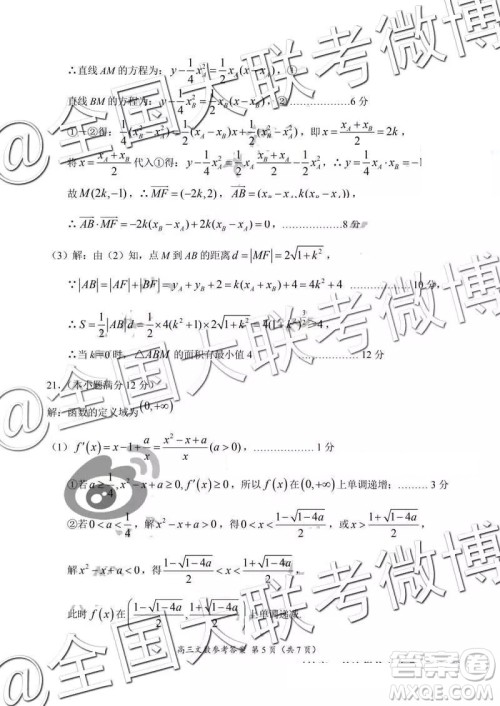 ∴直线AM的方程为：y-\frac{1}{4}x_A^2=\frac{1}{2}x_A(x-x_A)，①
直线BM的方程为：y-\frac{1}{4}x_B^2=\frac{1}{2}x_B(x-x_B)，②……………6分
①-②得：\frac{1}{4}(x_B^2-x_A^2)=\frac{1}{2}(x_A-x_B)x+\frac{1}{2}(x_B^2-x_A^2)，即x=\frac{x_A+x_B}{2}=2k，
将x=\frac{x_A+x_B}{2}代入①得：y-\frac{1}{4}x_A^2=\frac{1}{2}x_A\frac{x_B-x_A}{2}
故M(2k,-1)，∴\overrightarrow{MF}=(-2k,2)，\overrightarrow{AB}=
∴\overrightarrow{AB}·\overrightarrow{MF}=-2k(x_B-x_A)+2k(x_B-x_A)=0，……………8分
(3)解：由(2)知，点M到AB的距离d=|MF|=2\sqrt{1+k^2}，
∵|AB|=|AF|+|BF|=y_A+y_B+2=k(x_A+x_B)+4=4k^2+4 ……………10分，
∴S=\frac{1}{2}|AB|d=\frac{1}{2}×4(k^2+1)×2\sqrt{1+k^2}=4(1+k^2)^{\frac{3}{2}}≥4，
∴当k=0时，△ABM的面积有最小值4 ……………12分
21.（本小题满分12分）
解：函数的定义域为(0,+∞)
(1) f'(x)=x-1+\frac{a}{x}=\frac{x^2-x+a}{x}(a>0)，……………1分
①若a≥\frac{1}{4},x^2-x+a≥0,f'(x)≥0,所以f(x)在(0,+∞)上单调递增；………3分
②若0<a<\frac{1}{4}，解x^2-x+a>0，得0<x<\frac{1-\sqrt{1-4a}}{2}，或x>\frac{1+\sqrt{1-4a}}{2}，
解x^2-x+a<0，得\frac{1-\sqrt{1-4a}}{2}<x<\frac{1+\sqrt{1-4a}}{2}，
此时f(x)在(\frac{1-\sqrt{1-4a}}{2},\frac{1+\sqrt{1-4a}}{2})上单调递减
高三文数参考答案 第5页（共7页）
@全国大联考微博
@全国大联考微博
答案圈